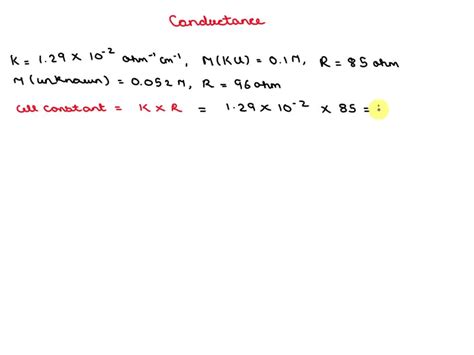 Conductance
K = 1.29 × 10⁻² ohm⁻¹ cm⁻¹, M(KCl) = 0.1M, R = 85 ohm
M(unknown) = 0.052 M, R = 96 ohm
Cell Constant = K × R = 1.29 × 10⁻² × 85 =